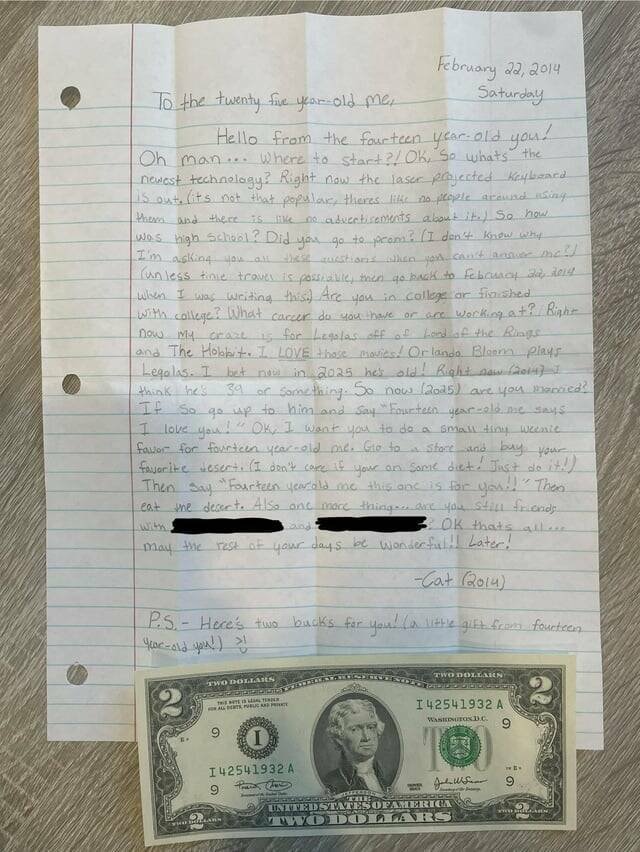 February 22, 2014
Saturday
To the twenty five year-old me,
Hello from the fourteen year-old you!
Oh man... Where to start?! OK, So whats the
newest technology? Right now the laser projected Keyboard
is out. (its not that popular, theres like no people around using
them and there is like no advertisements about it.) So how
was high School? Did you go to prom? (I don't know why
I'm asking you all these questions when you can't answer me?)
(unless time travel is possiable, then go back to February 22, 2014
when I was writing this.) Are you in college or finished
with college? What career do you have or are working at? Right
now my craze is for Legolas off of Lord of the Rings
and The Hobbit. I LOVE those movies! Orlando Bloom plays
Legolas. I bet now in 2025 he's old! Right now (2014) I
think he's 39 or something. So now (2025) are you married?
If so go up to him and Say "Fourteen year-old me says
I love you!" OK, I want you to do a small tiny weenie
favor for fourteen year-old me. Go to a store and buy your
favorite desert. (I don't care if your on some diet! Just do it!)
Then say "Fourteen year old me this one is for you!!" Then
eat the desert. Also one more thing... are you still friends
with and ? OK thats all...
may the rest of your days be wonderful!! Later!
-Cat (2014)
P.S. - Here's two bucks for you! (a little gift from fourteen
year-old you!)
2 TWO DOLLARS FEDERAL RESERVE NOTE TWO DOLLARS 2
THIS NOTE IS LEGAL TENDER
FOR ALL DEBTS, PUBLIC AND PRIVATE
I 42541932 A
WASHINGTON, D.C.
9 9
I
TWO
I 42541932 A
9 9
THE
UNITED STATES OF AMERICA
2 TWO DOLLARS 2